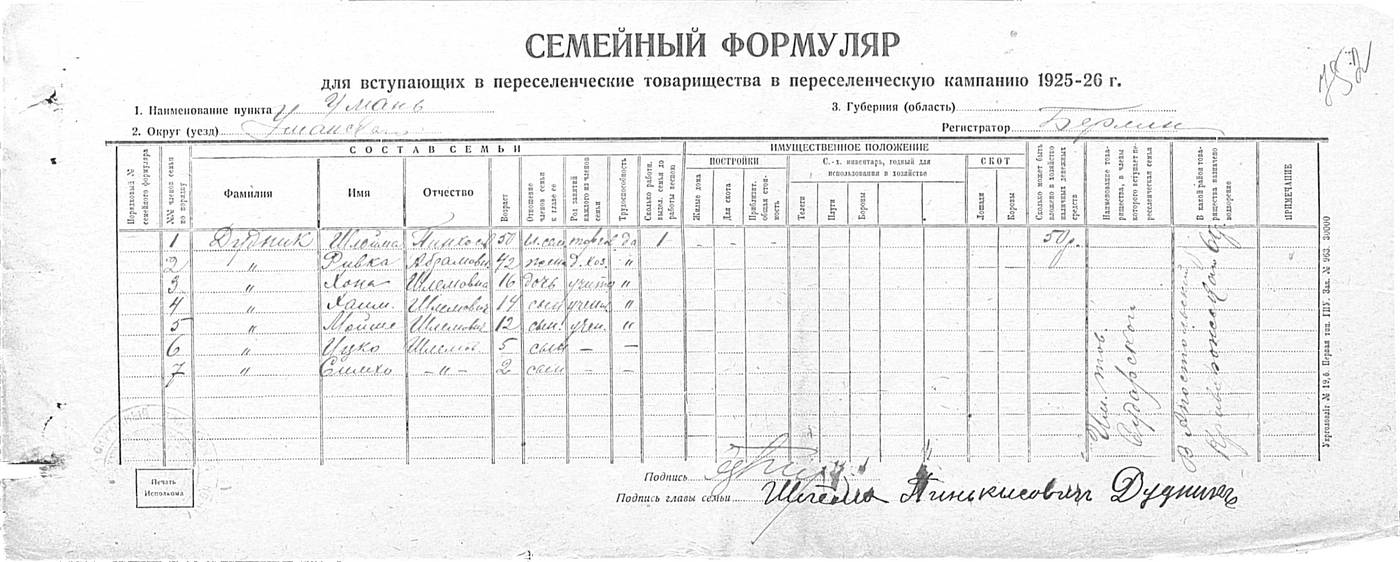 СЕМЕЙНЫЙ ФОРМУЛЯР
для вступающих в переселенческие товарищества в переселенческую кампанию 1925-26 г.
752
1. Наименование пункта Умань
3. Губерния (область)
2. Округ (уезд) Уманский
Регистратор Берлин
СОСТАВ СЕМЬИ
ИМУЩЕСТВЕННОЕ ПОЛОЖЕНИЕ
Порядковый № семейного формуляра
№№ членов семьи по порядку
Фамилия
Имя
Отчество
Возраст
Отношение членов семьи к главе ее
Род занятий каждого из членов семьи
Трудоспособность
Сколько работн. выдел. семья до работы весною
ПОСТРОЙКИ
Жилые дома
Для скота
Приблизит. общая стоимость
С.-х. инвентарь, годный для использования в хозяйстве
Телеги
Плуги
Бороны
СКОТ
Лошади
Коровы
Сколько может быть вложено в хозяйство наличных денежных средств
Наименование товарищества, в члены которого вступает переселенческая семья
В какой район товарищества назначено водворение
ПРИМЕЧАНИЕ
1 Дудник Шлойма Пинхос 50 торгов да 1 - - - 50р.
2 " Ривка Абрамовн 42 жена д. хоз. "
3 " Хона Шлемовна 16 дочь "
4 " Хаим. Шлемович 14 сын учени "
5 " Мойше Шлемович 12 сын. учен. "
6 " Ицко Шлемов. 5 сын — —
7 " Симхо —"— 2 сын - -
Им. тов.
Печать Исполкома
Подпись
Подпись главы семьи Шлёма Пинькисович Дудникъ
Укрголовліт № 19,6. Первая тип. ГПУ. Зак. № 963. 30000